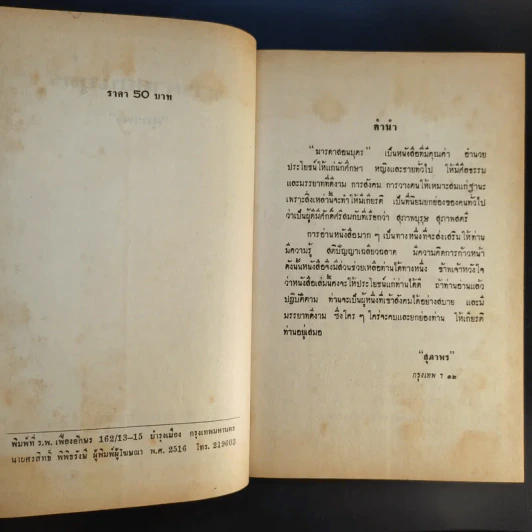 ราคา 50 บาท
พิมพ์ที่ ร.พ. เฟื่องอักษร 162/13-15 บำรุงเมือง กรุงเทพมหานคร
นายศรสิทธิ์ พิพิธรังษี ผู้พิมพ์ผู้โฆษณา พ.ศ. 2516 โทร. 219603
คำนำ
"มารดาสอนบุตร" เป็นหนังสือที่มีคุณค่า อำนวย
ประโยชน์ให้แก่นักศึกษา หญิงและชายทั่วไป ให้มีศีลธรรม
และมรรยาทที่ดีงาม การสังคม การวางตนให้เหมาะสมแก่ฐานะ
เพราะสิ่งเหล่านี้จะทำให้มีเกียรติ เป็นที่นิยมยกย่องของคนทั่วไป
ว่าเป็นผู้ดีมีศักดิ์ศรีสมกับที่เรียกว่า สุภาพบุรุษ สุภาพสตรี
การอ่านหนังสือมาก ๆ เป็นทางหนึ่งที่จะส่งเสริมให้ท่าน
มีความรู้ สติปัญญาเฉลียวฉลาด มีความคิดการก้าวหน้า
ดังนั้นหนังสือจึงมีส่วนช่วยเหลือท่านได้ทางหนึ่ง ข้าพเจ้าหวังใจ
ว่าหนังสือเล่มนี้คงจะให้ประโยชน์แก่ท่านได้ ถ้าท่านอ่านแล้ว
ปฏิบัติตาม ท่านจะเป็นผู้หนึ่งที่เข้าสังคมได้อย่างสบาย และมี
มรรยาทดีงาม ซึ่งใคร ๆ ใคร่จะคบและยกย่องท่าน ให้เกียรติ
ท่านอยู่เสมอ
"สุภาพร"
กรุงเทพ ฯ ๑๒